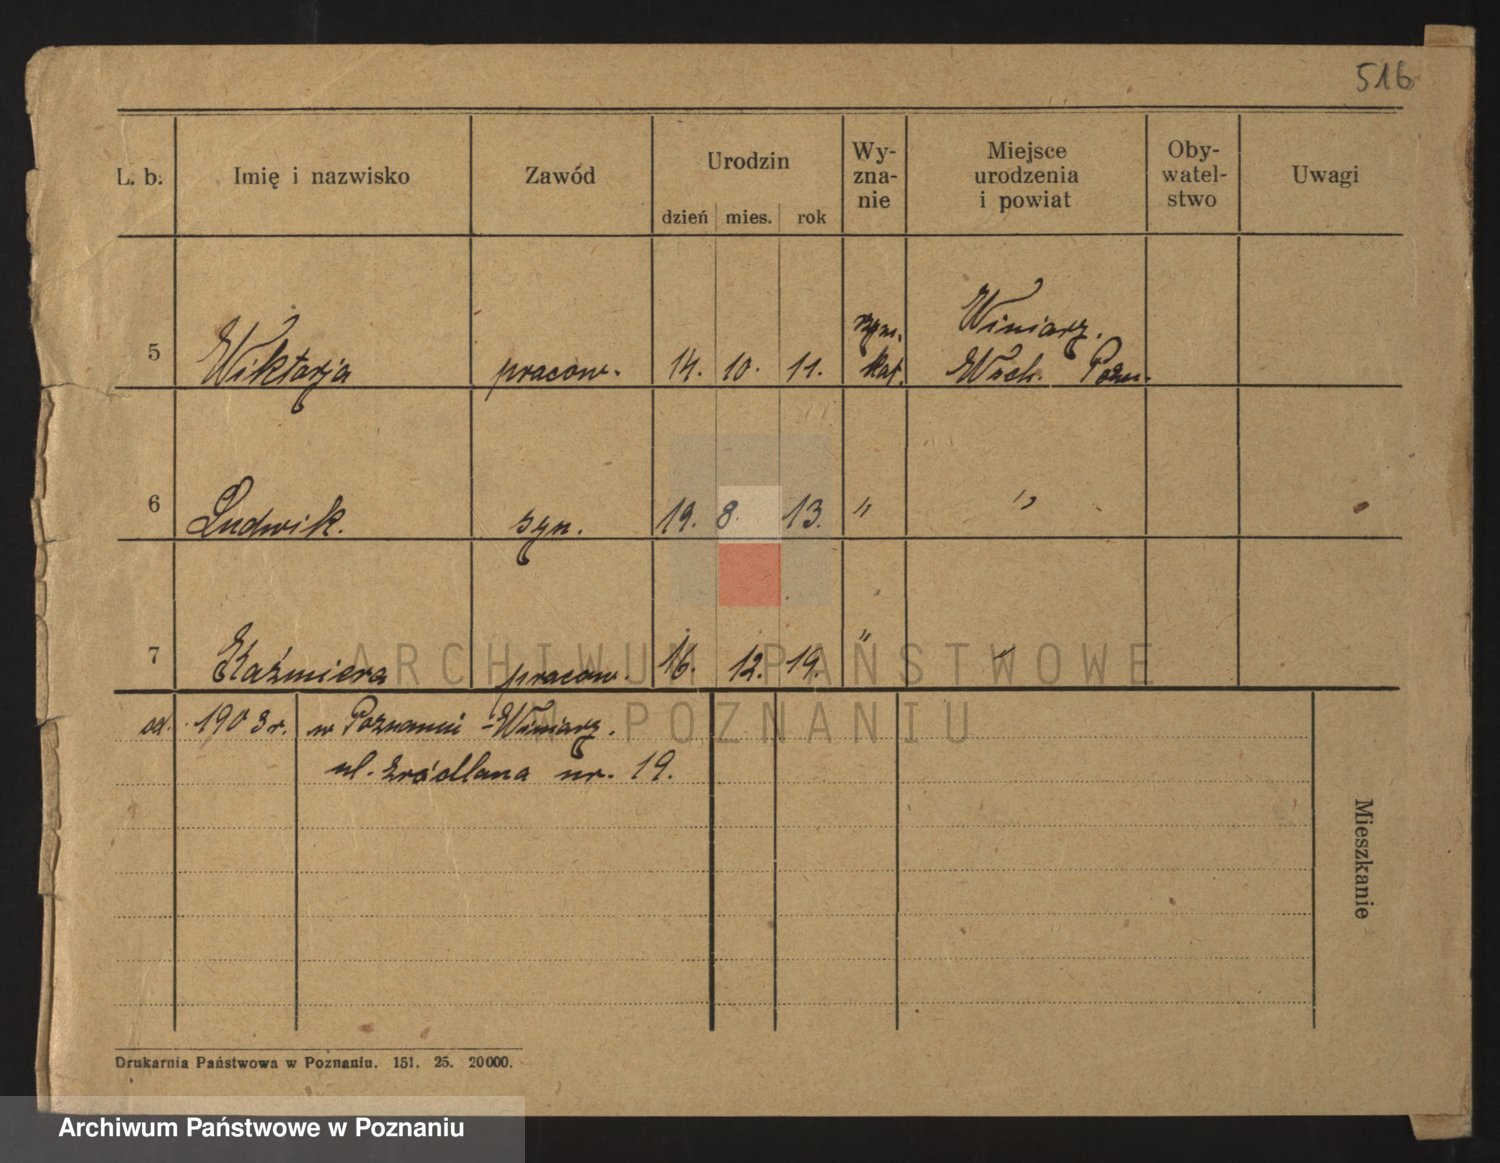 516
L. b. Imię i nazwisko Zawód Urodzin Wy-
zna-
nie Miejsce
urodzenia
i powiat Oby-
watel-
stwo Uwagi
dzień mies. rok
5 Wiktorja pracow. 14. 10. 11. rzym.
kat. Winiary.
Wsch. Pozn.
6 Ludwik. syn. 19. 8. 13. " "
7 Kaźmiera pracow. 16. 12. 19. " "
od. 1903 r. w Poznaniu - Winiary.
ul. źródlana nr. 19.
Mieszkanie
Drukarnia Państwowa w Poznaniu. 151. 25. 20000.
ARCHIWUM PAŃSTWOWE
W POZNANIU
Archiwum Państwowe w Poznaniu